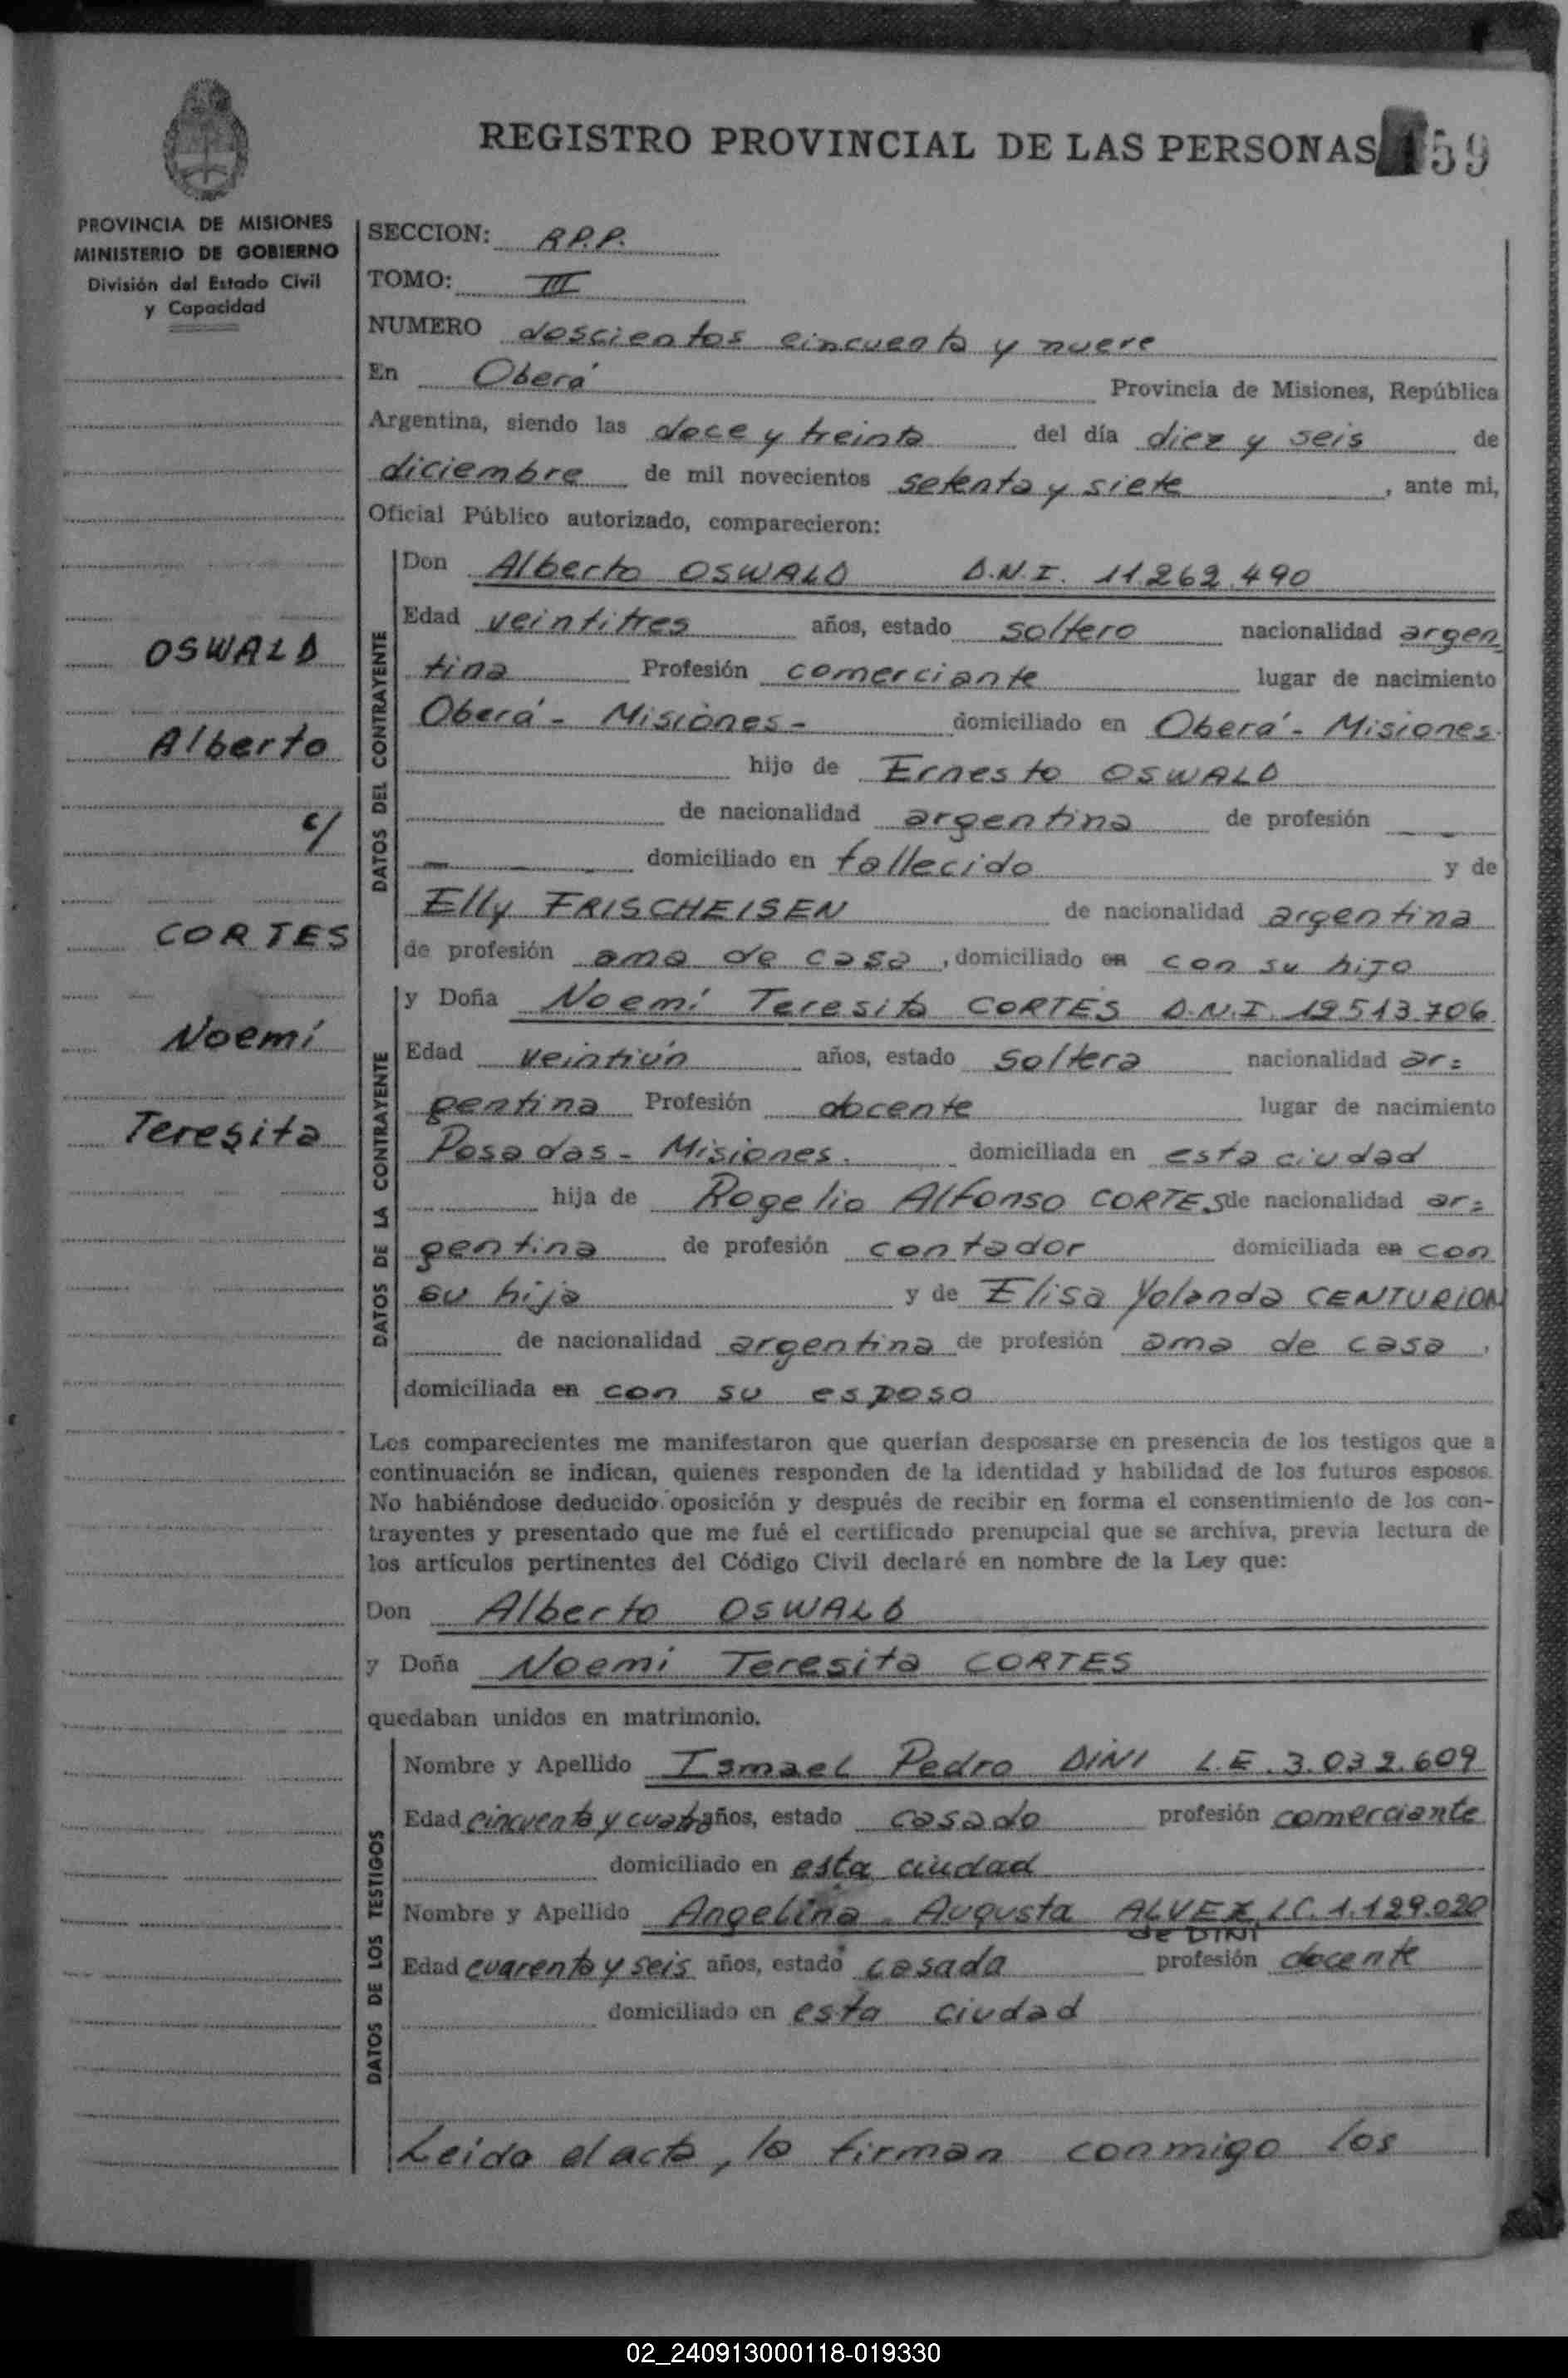 REGISTRO PROVINCIAL DE LAS PERSONAS 159
PROVINCIA DE MISIONES
MINISTERIO DE GOBIERNO
División del Estado Civil
y Capacidad
OSWALD
Alberto
c/
CORTES
Noemí
Teresita
SECCION: R.P.P.
TOMO: III
NUMERO doscientos cincuenta y nueve
En Oberá Provincia de Misiones, República
Argentina, siendo las doce y treinta del día diez y seis de
diciembre de mil novecientos setenta y siete, ante mi,
Oficial Público autorizado, comparecieron:
DATOS DEL CONTRAYENTE
Don Alberto OSWALD D.N.I. 11.262.490
Edad veintitres años, estado soltero nacionalidad argen
tina Profesión comerciante lugar de nacimiento
Oberá - Misiones - domiciliado en Oberá - Misiones.
hijo de Ernesto OSWALD
de nacionalidad argentina de profesión - -
- domiciliado en fallecido y de
Elly FRISCHEISEN de nacionalidad argentina
de profesión ama de casa, domiciliado en con su hijo
DATOS DE LA CONTRAYENTE
y Doña Noemí Teresita CORTES D.N.I. 12.513.706
Edad veintiún años, estado soltera nacionalidad ar=
gentina Profesión docente lugar de nacimiento
Posadas - Misiones. domiciliada en esta ciudad
hija de Rogelio Alfonso CORTES de nacionalidad ar=
gentina de profesión contador domiciliada en con
su hija y de Elisa Yolanda CENTURION
de nacionalidad argentina de profesión ama de casa,
domiciliada en con su esposo
Los comparecientes me manifestaron que querían desposarse en presencia de los testigos que a
continuación se indican, quienes responden de la identidad y habilidad de los futuros esposos.
No habiéndose deducido oposición y después de recibir en forma el consentimiento de los con-
trayentes y presentado que me fué el certificado prenupcial que se archiva, previa lectura de
los artículos pertinentes del Código Civil declaré en nombre de la Ley que:
Don Alberto OSWALD
y Doña Noemi Teresita CORTES
quedaban unidos en matrimonio.
DATOS DE LOS TESTIGOS
Nombre y Apellido Ismael Pedro DINI L.E. 3.032.609
Edad cincuenta y cuatro años, estado casado profesión comerciante
domiciliado en esta ciudad
Nombre y Apellido Angelina Augusta ALVEZ L.C. 1.129.020
de DINI
Edad cuarenta y seis años, estado casada profesión docente
domiciliado en esta ciudad
Leida el acta, la firman conmigo los
02_240913000118-019330